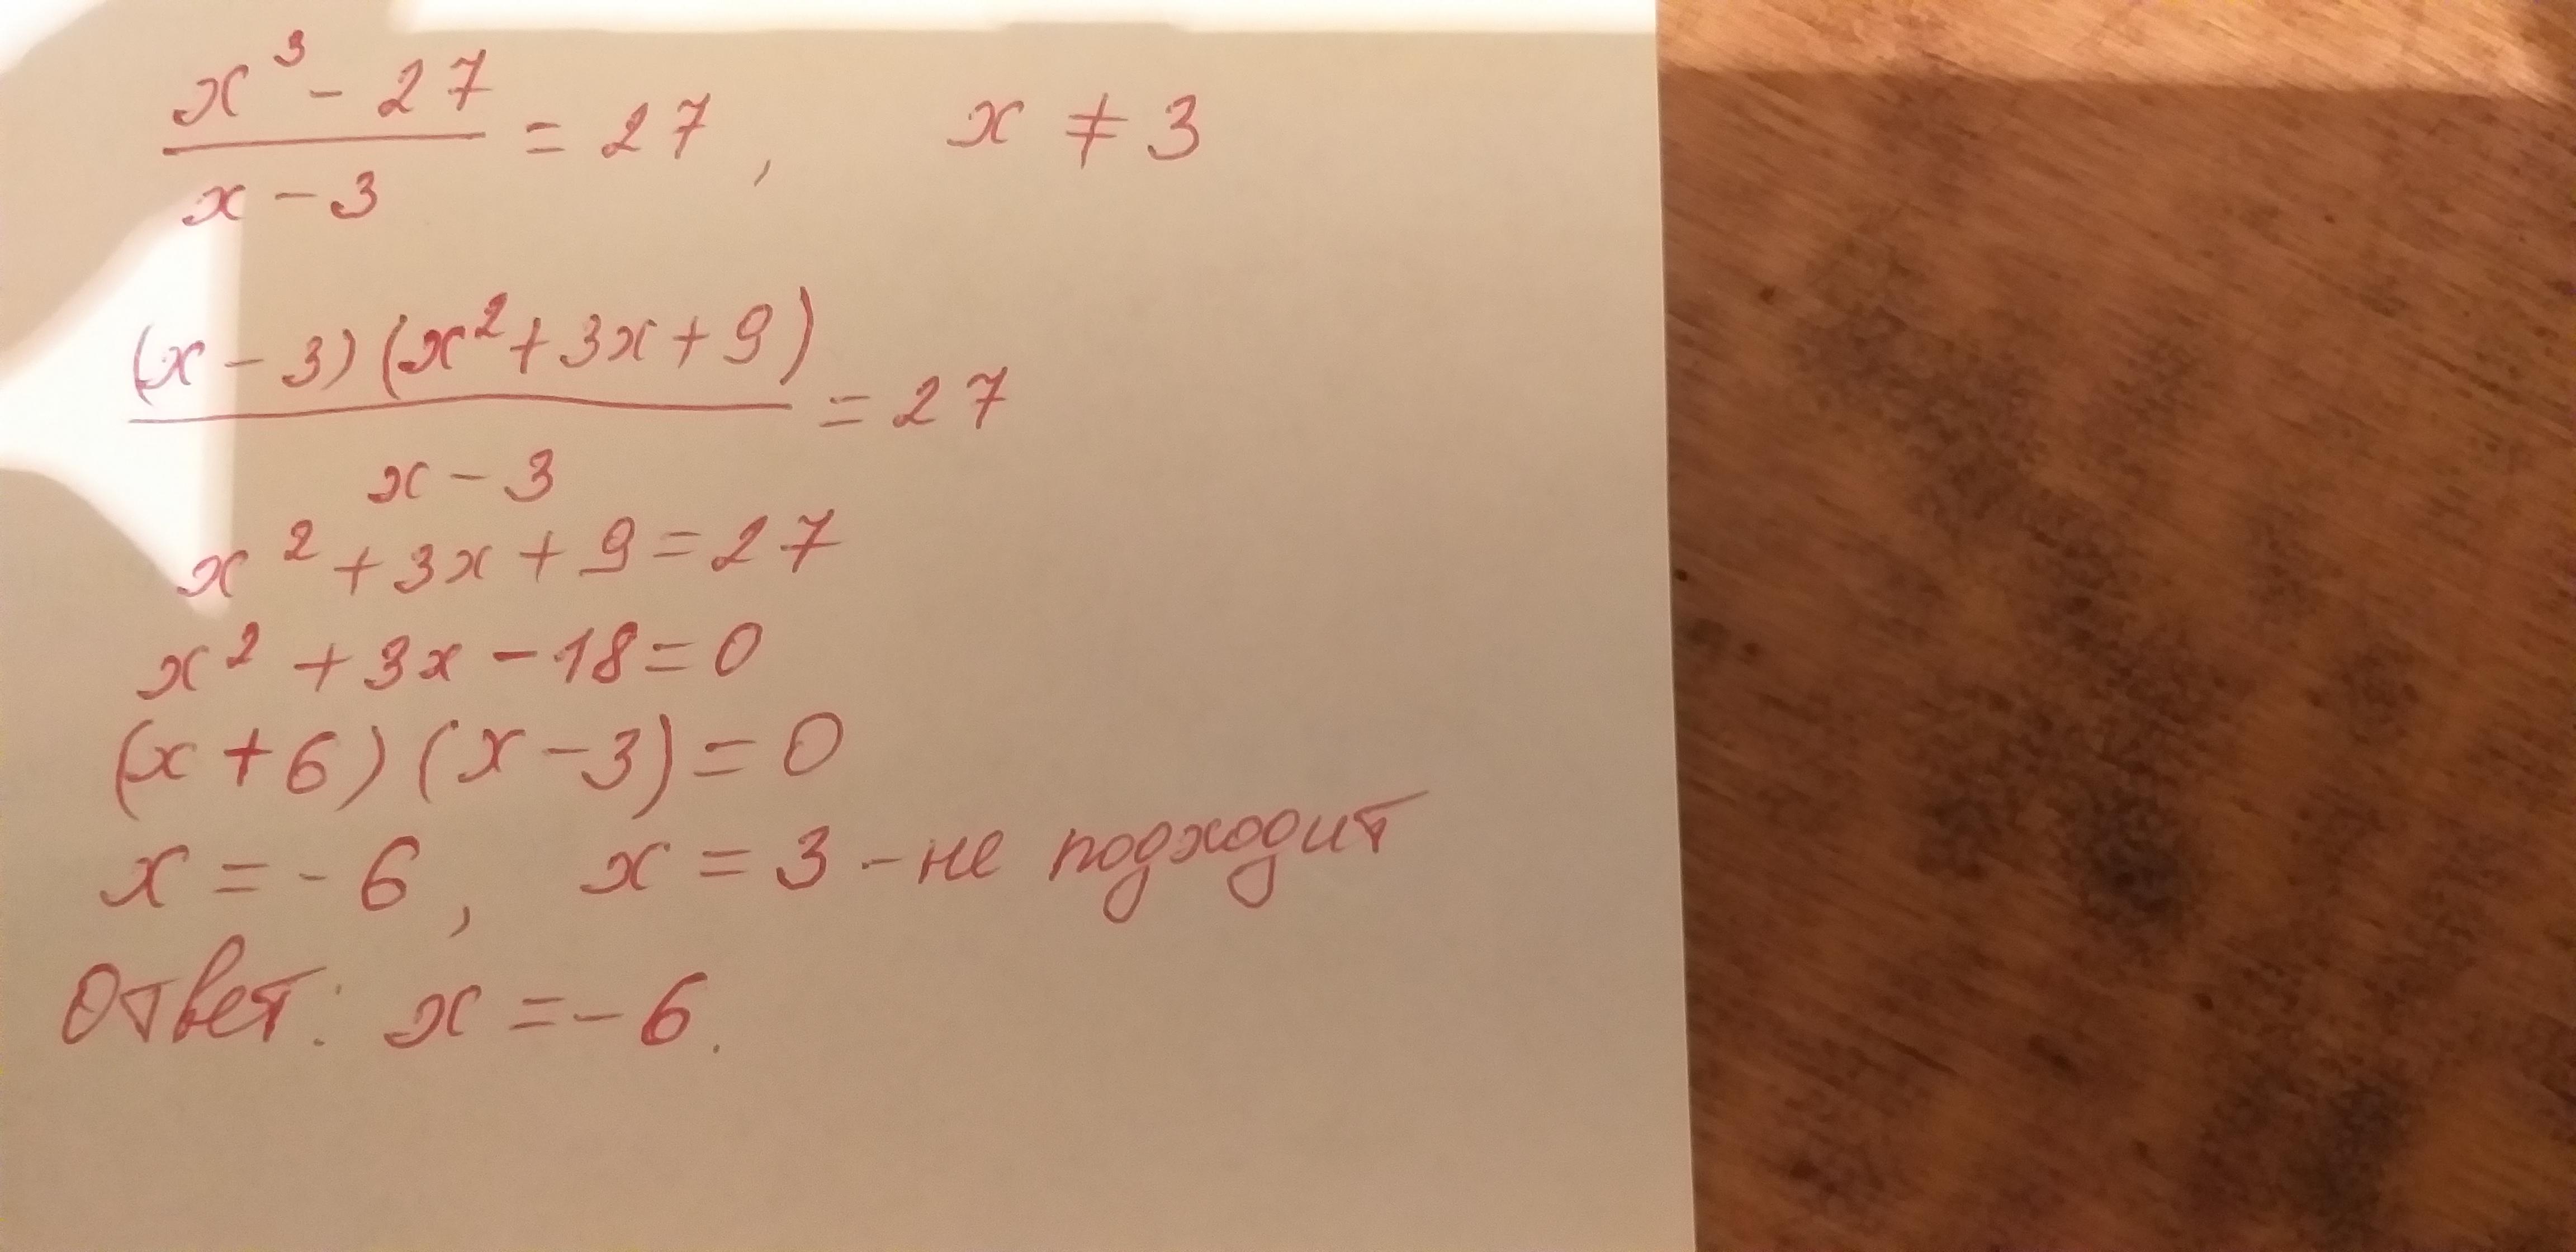 x³ - 27 / x - 3 = 27, x ≠ 3
(x - 3)(x² + 3x + 9) / x - 3 = 27
x² + 3x + 9 = 27
x² + 3x - 18 = 0
(x + 6)(x - 3) = 0
x = -6, x = 3 - не подходит
Ответ: x = -6.